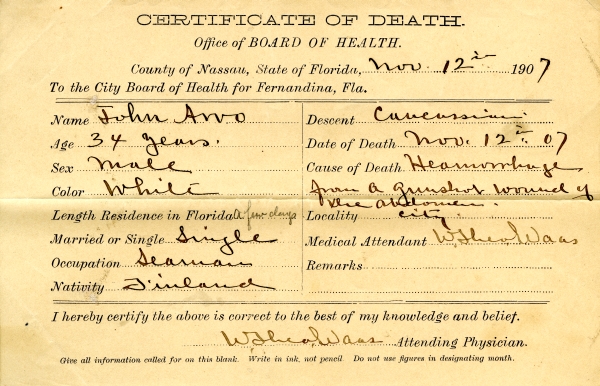 CERTIFICATE OF DEATH.
Office of BOARD OF HEALTH.
County of Nassau, State of Florida, Nov. 12th 1907
To the City Board of Health for Fernandina, Fla.
Name John Arvo
Age 34 years.
Sex Male
Color White
Length Residence in Florida a few days
Married or Single Single
Occupation Seaman
Nativity Finland
Descent Caucassian
Date of Death Nov. 12th 07
Cause of Death Heamorrhage
from a gunshot wound of
the abdomen.
Locality city.
Medical Attendant W. Theo. Waas
Remarks
I hereby certify the above is correct to the best of my knowledge and belief.
W. Theo. Waas Attending Physician.
Give all information called for on this blank. Write in ink, not pencil. Do not use figures in designating month.